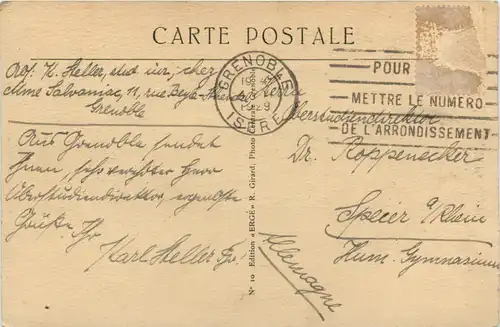 CARTE POSTALE
GRENOBLE
1929
ISÈRE
POUR
METTRE LE NUMÉRO
DE L'ARRONDISSEMENT
Abs. K. Heller, stud iur, chez
Mme Salvaniac, 11, rue
Grenoble
Aus Grenoble sendet
Ihnen, sehr verehrter Herr
Oberstudiendirektor, ergebenste
Grüße Ihr
Karl Heller
Nº 10 Edition "ERGÉ" R. Girard, Photo
Herrn
Oberstudiendirektor
Dr. Roppenecker
Speier a/Rhein
Hum. Gymnasium
Allemagne